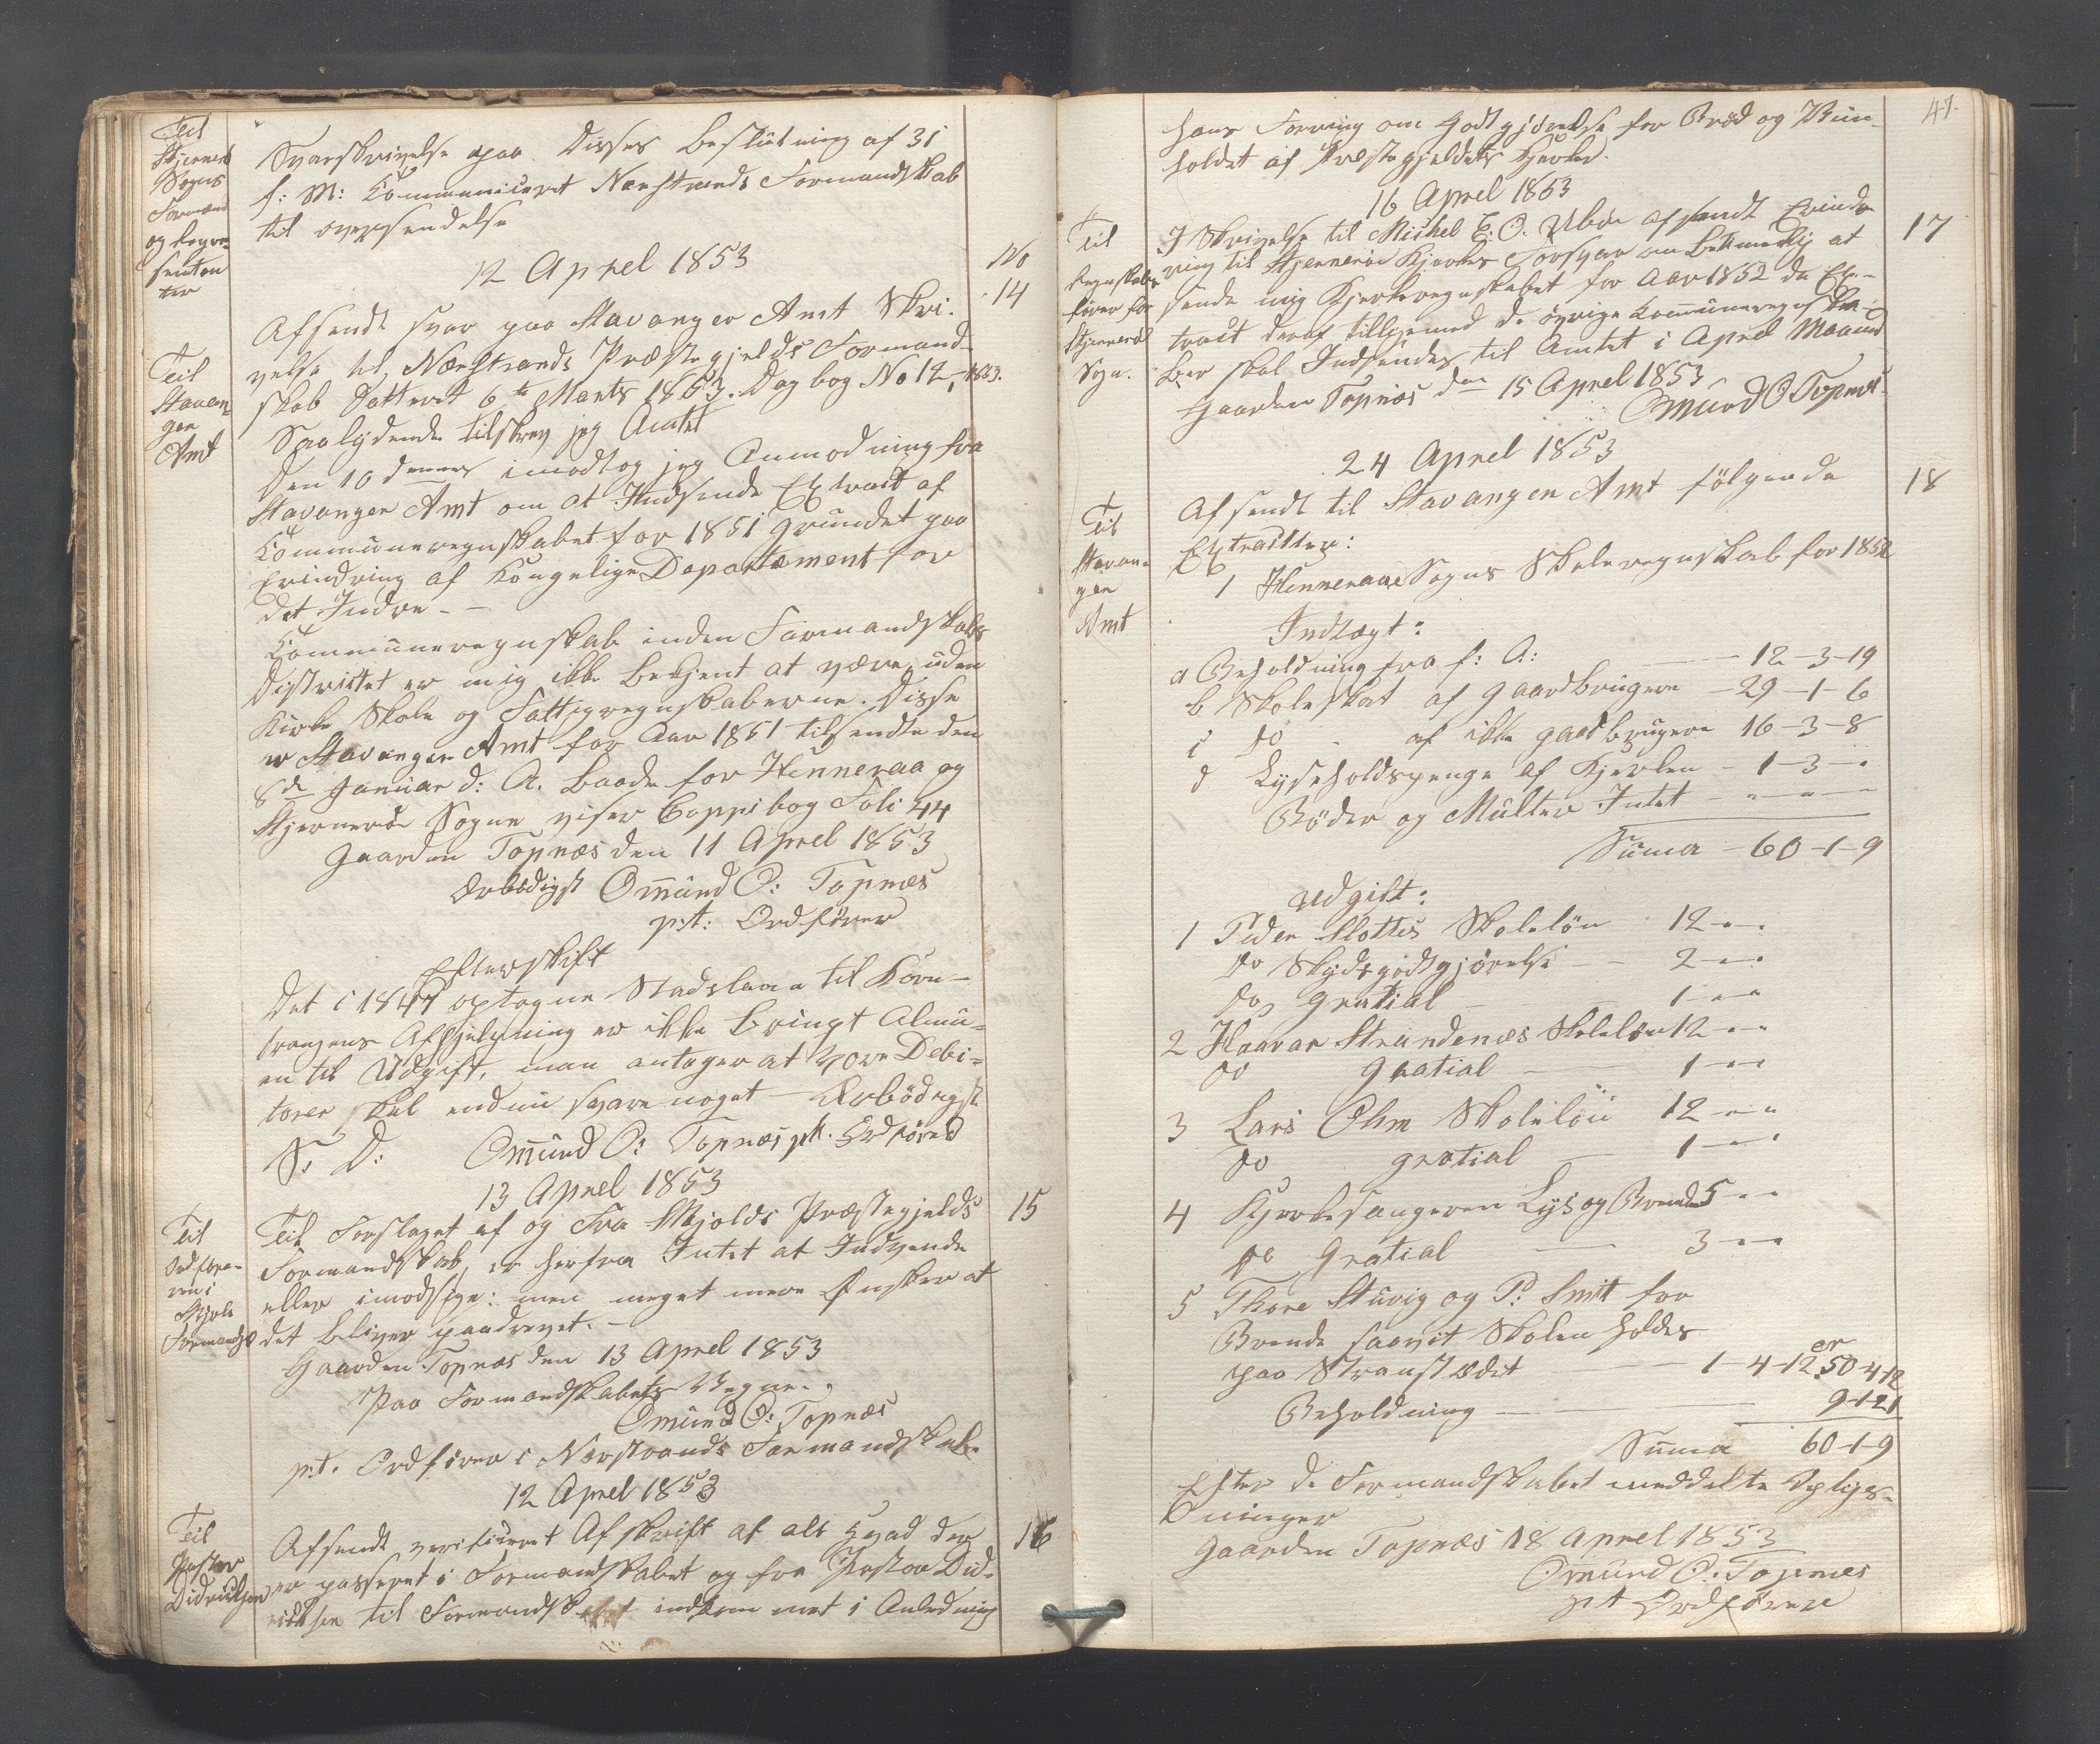 Til
Stjernerö
Sogns
Formænd
og Repræ-
sentan
ter
Svarskrivelse paa Disses Beslutning af 31
f: M: Communiceret Nerstrands Formandskab
til oversendelse
12 Aprel 1853
No
14
Til
Stavan
ger
Amt
Afsendt svar paa Stavanger Amt Skri-
velse til Nerstrands Præstegjelds Formand-
skab Datteret 6te Marts 1853. Dag bog No 12, 1853.
Saalydende tilskrev jeg Amtet
Den 10 dennes imodtog jeg Anmodning fra
Stavanger Amt om at Indsende Extract af
Communeregnskabet for 1851 grundet paa
Erindring af Kongelige Departement for
det Indre - -
Communeregnskab inden Formandskabs
Distrittet er mig ikke bekjent at være uden
Kirke Skole og Fattigregnskaberne. Disse
er Stavanger Amt for Aar 1851 tilsendte den
8de Januar d: A. baade for Hinneraa og
Stjernerö Sogne viser Coppibog Foli 44
Gaarden Topnæs den 11 Aprel 1853
Ærbödigst Omund O: Topnæs
p:t: Ordförer
Efterskift
Det i 1847 optagne Stadslaan til Korn-
trangens Afhjelpning er ikke bringt Almu-
en til Udgift, man antager at vore Debi-
torer skal endnu svare noget - Ærbödigst
S: D: Omund O: Topnæs pt. Ordförer
13 Aprel 1853
Til
Ordföre-
ren i
Skjolds
Formandsk
Til Forslaget af og Fra Skjolds Præstegjelds
Formandskab, er herfra Intet at Indvende
eller imodsige: men meget mere Ønsker at
det bliver paadrevet. -
15
Gaarden Topnæs den 13 Aprel 1853
Paa Formandskabets Vegne.
Omund O: Topnæs
p:t. Ordförer i Nerstrands Formandskab
12 Aprel 1853
Til
Pastor
Didriksen
Afsendt verificeret Afskrift af alt hvad der
er passeret i Formandskabet og fra Pastor Did-
riksen til Formandskabet indkommet i Anledning
16
47.
hans Forring om Godtgjörelse for Bröd og Viin-
holdet af Præstegjeldets Kjerker.
16 Aprel 1853
Til
Regnskabs
förer for
Stjernerö
Sogn.
I Skrivelse til Michel E: O. Ubøe afsendt Erind-
ring til Stjernerøe Kjerkes Forsvar om betimelig at
sende mig Kjerkeregnskabet for Aar 1852 da Ex-
tract deraf tilligemed de øvrige Kommuneregnska-
ber skal Indsendes til Amtet i Aprel Maaned
17
Gaarden Topnæs den 15 Aprel 1853
Omund O Topnæs
24 Aprel 1853
Til
Stavan-
ger
Amt
Afsendt til Stavanger Amt fölgende
Extracter:
18
1 Hinneraae Sogns Skoleregnskab for 1852
Indtægt:
a Beholdning fra f: A: 12-3-19
b Skoleskat af Gaardbrugere - 29-1-6
c do af ikke gaardbrugere 16-3-8
d Lyseholdspenge af Kjerken - 1-3-"
Böder og Mulkter Intet - " - " - "
Suma - 60-1-9
Udgift:
1 Peder Slottis Skolelön 12-"-"
do Skydsgodtgjörelse 2-"-"
do Gratial 1-"-"
2 Haavar Strandenæs Skolelön 12-"-"
do Gratial 1-"-"
3 Lars Ohm Skolelön 12-"-"
do gratial 1-"-"
4 Kjerkesangeren Lys og Brænde 5-"-"
do Gratial 3-"-"
5 Thore Stuvig og P: Smit for
Brende saavit Skolen holdes
paa Stranstædet 1-4-12 er 50-4-12
Beholdning 9-1-21
Suma 60-1-9
Efter de Formandskabet meddelte Oplys-
ninger
Gaarden Topnæs 18 Aprel 1853
Omund O: Topnæs
pt Ordförere